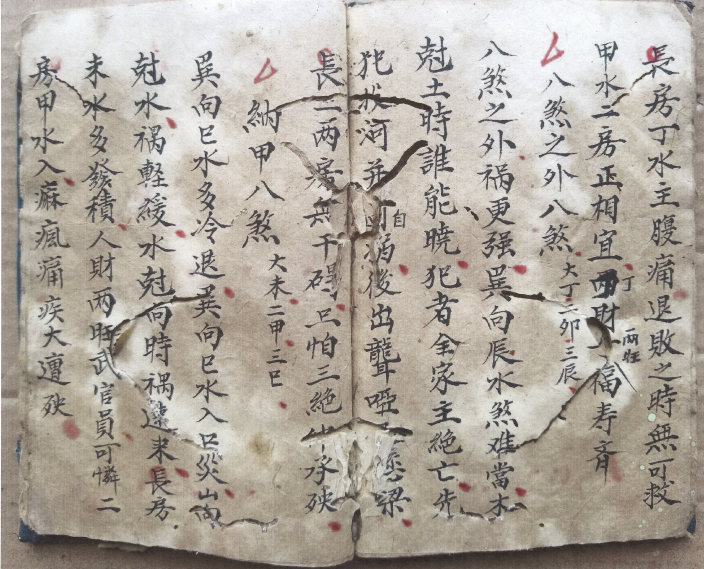 長房丁水主腹痛退敗之時無可救
甲水二房正相宜兩財丁福寿齊
丁
兩旺
八煞之外八煞 大丁二卯三辰
八煞之外禍更强巽向辰水煞难當木
尅土時誰能曉犯者全家主絶亡先
犯 河 病後出聾啞 梁
自
長二两房無干碍只怕三絶 承殃
納甲八煞 大未二甲三巳
巽向巳水多冷退巽向巳水入口災山向
尅水禍軽緩水尅向時禍 来長房
未水多發積人財两旺武官員可憐二
房甲水入痳瘋痛疾大遭殃